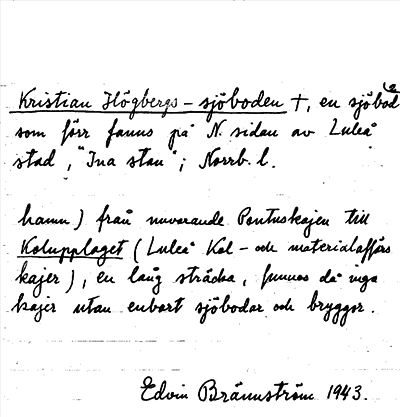 Kristian Högbergs-sjöboden †, en sjöbod
som förr fanns på N. sidan av Luleå
stad, "Ina stan"; Norrb. l.
hamn) från nuvarande Pontuskajen till
Kolupplaget (Luleå Kol- och materialaffärs
kajer), en lång sträcka, funnos då inga
kajer utan enbart sjöbodar och bryggor.
Edvin Brännström 1943.